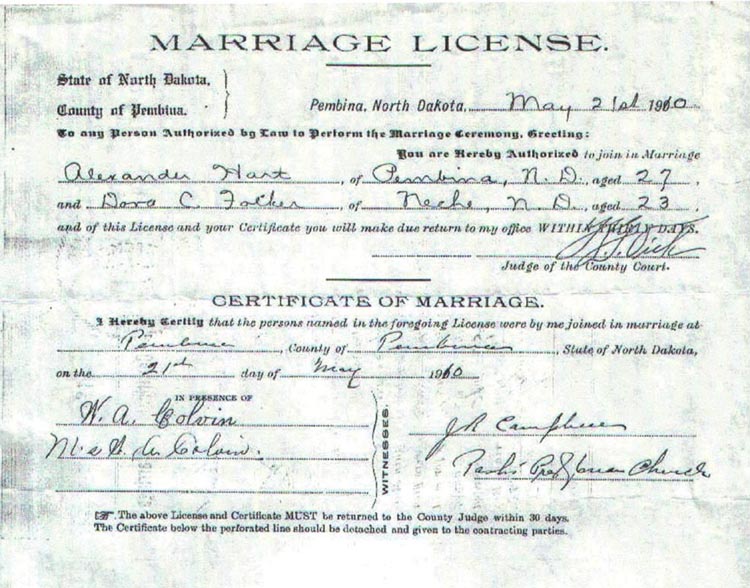 MARRIAGE LICENSE.
State of North Dakota,
County of Pembina.
Pembina, North Dakota, May 21st 1910
To any Person Authorized by Law to Perform the Marriage Ceremony, Greeting:
You are Hereby Authorized to join in Marriage
Alexander Hart, of Pembina, N. D., aged 27,
and Dora C. Folker of Neche, N. D., aged 23
and of this License and your Certificate you will make due return to my office WITHIN THIRTY DAYS.
Judge of the County Court.
CERTIFICATE OF MARRIAGE.
I Hereby Certify that the persons named in the foregoing License were by me joined in marriage at
Pembina, County of Pembina, State of North Dakota,
on the 21st day of May 1910
IN PRESENCE OF
W. A. Colvin
Colvin.
WITNESSES.
J R Campbell
Church
☞ The above License and Certificate MUST be returned to the County Judge within 30 days.
The Certificate below the perforated line should be detached and given to the contracting parties.